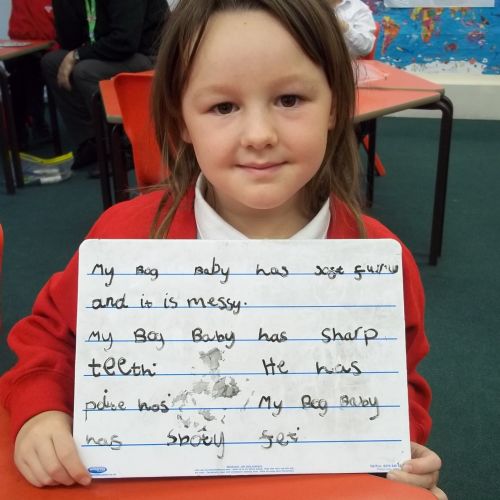 My Bog Baby has soft
and it is messy.
My Bog Baby has sharp
teeth. He has
My Bog Baby
has